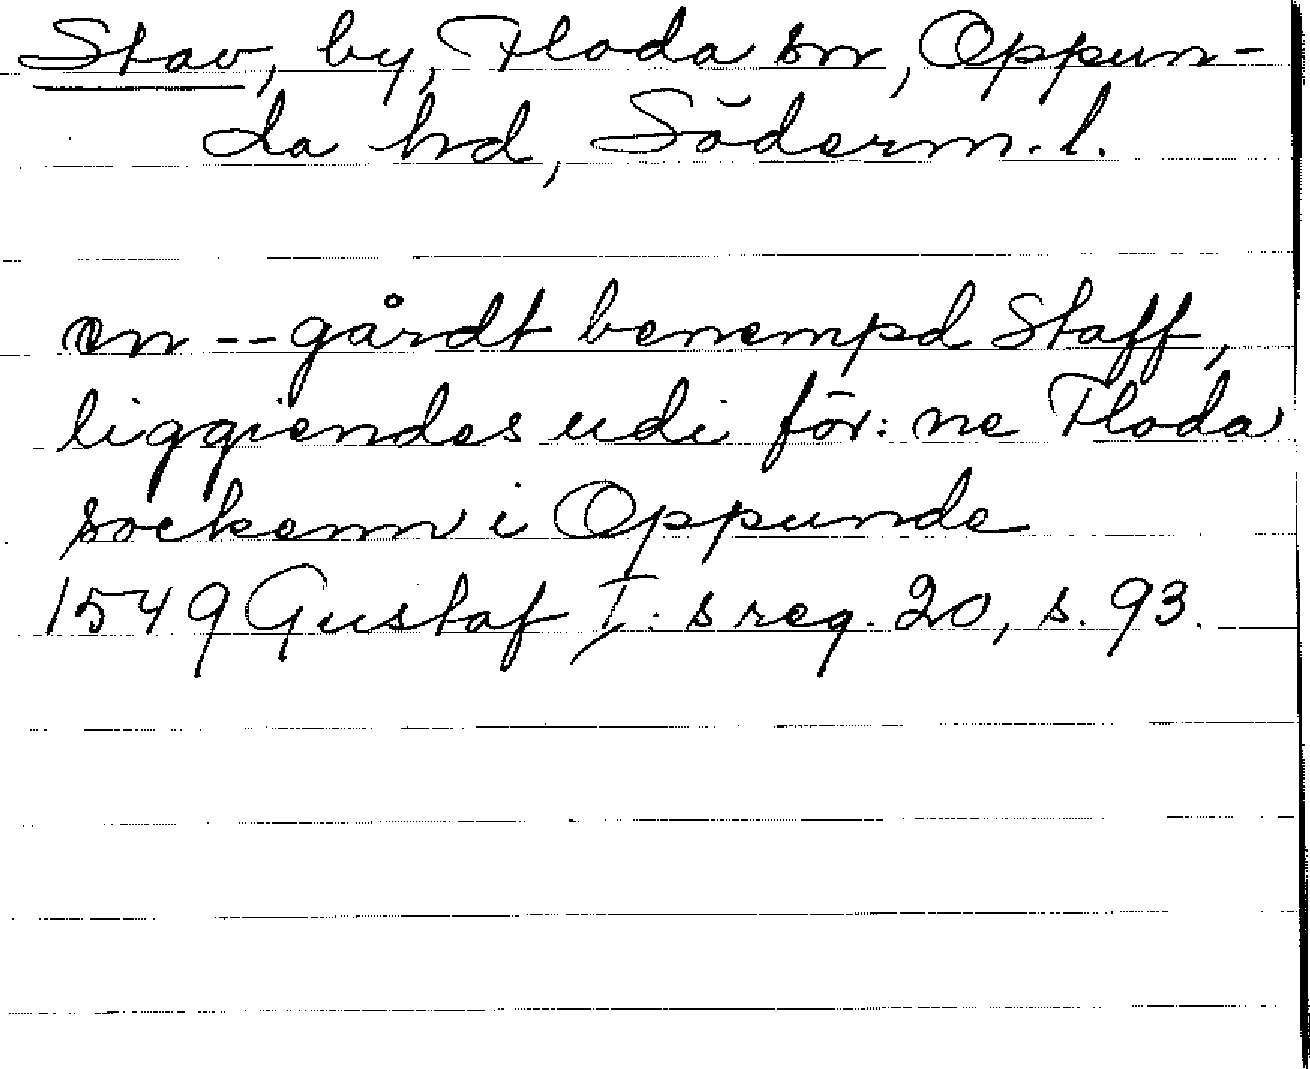 Stav, by, Floda sn, Oppun-
da hd, Söderm. l.
en -- gårdt benempd Staff,
liggiendes udi för: ne Floda
sockenn i Oppunde
1549 Gustaf I: s reg. 20, s. 93.